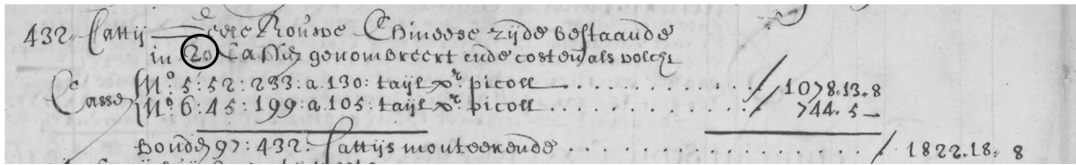 432. Cattij eele Rouwe Chineese zijde bestaande
in 20 Cassen genombreert ende costen als volcht
Casse N.o 5: 52: 233: a 130: taijl p.r picoll .......... / 1078.13.8
N.o 6: 45: 199: a. 105: taijl p.r picoll .......... / 744.5 —
bonde 97: 432: Cattijs monteerende .......... / 1822.18.8